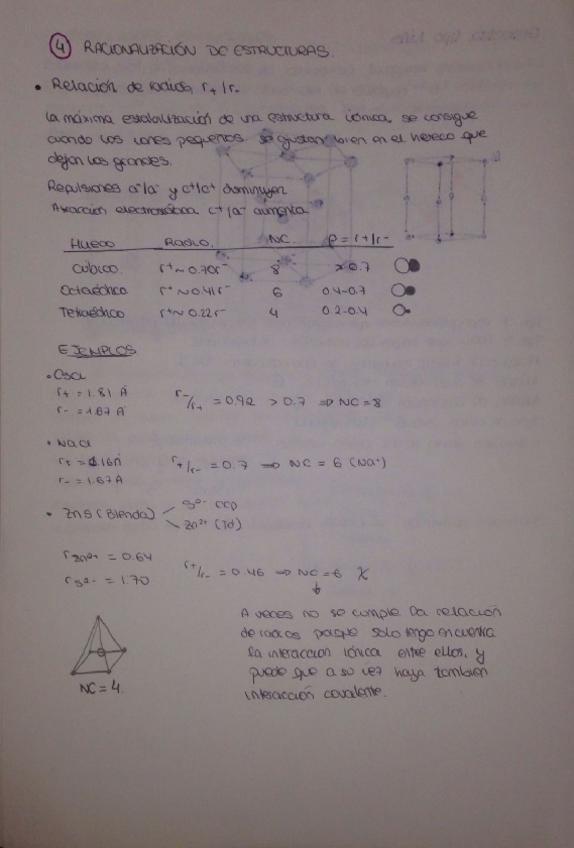 4 RACIONALIZACIÓN DE ESTRUCTURAS.
• Relación de radios r+/r-
La máxima estabilización de una estructura iónica, se consigue
cuando los iones pequeños se ajustan bien en el hueco que
dejan los grandes.
Repulsiones a-/a- y c+/c+ disminuyen
Atracción electrostática c+/a- aumenta
HUECO RADIO. NC. ρ = r+/r-
Cúbico. r+ ~ 0.70r- 8 >0.7
Octaédrico r+ ~ 0.41r- 6 0.4-0.7
Tetraédrico r+ ~ 0.22r- 4 0.2-0.4
EJEMPLOS
• CsCl
r+ = 1.81 Å
r- = 1.67 Å
r-/r+ = 0.92 > 0.7 ⇒ NC = 8
• NaCl
r+ = 1.16 Å
r- = 1.67 Å
r+/r- = 0.7 ⇒ NC = 6 (Na+)
• ZnS (Blenda)
S2- CCP
Zn2+ (Td)
r Zn2+ = 0.64
r S2- = 1.70
r+/r- = 0.46 ⇒ NC = 6 X
A veces no se cumple la relación
de radios porque solo tengo en cuenta
la interacción iónica entre ellos, y
puede que a su vez haya también
interacción covalente.
NC = 4.